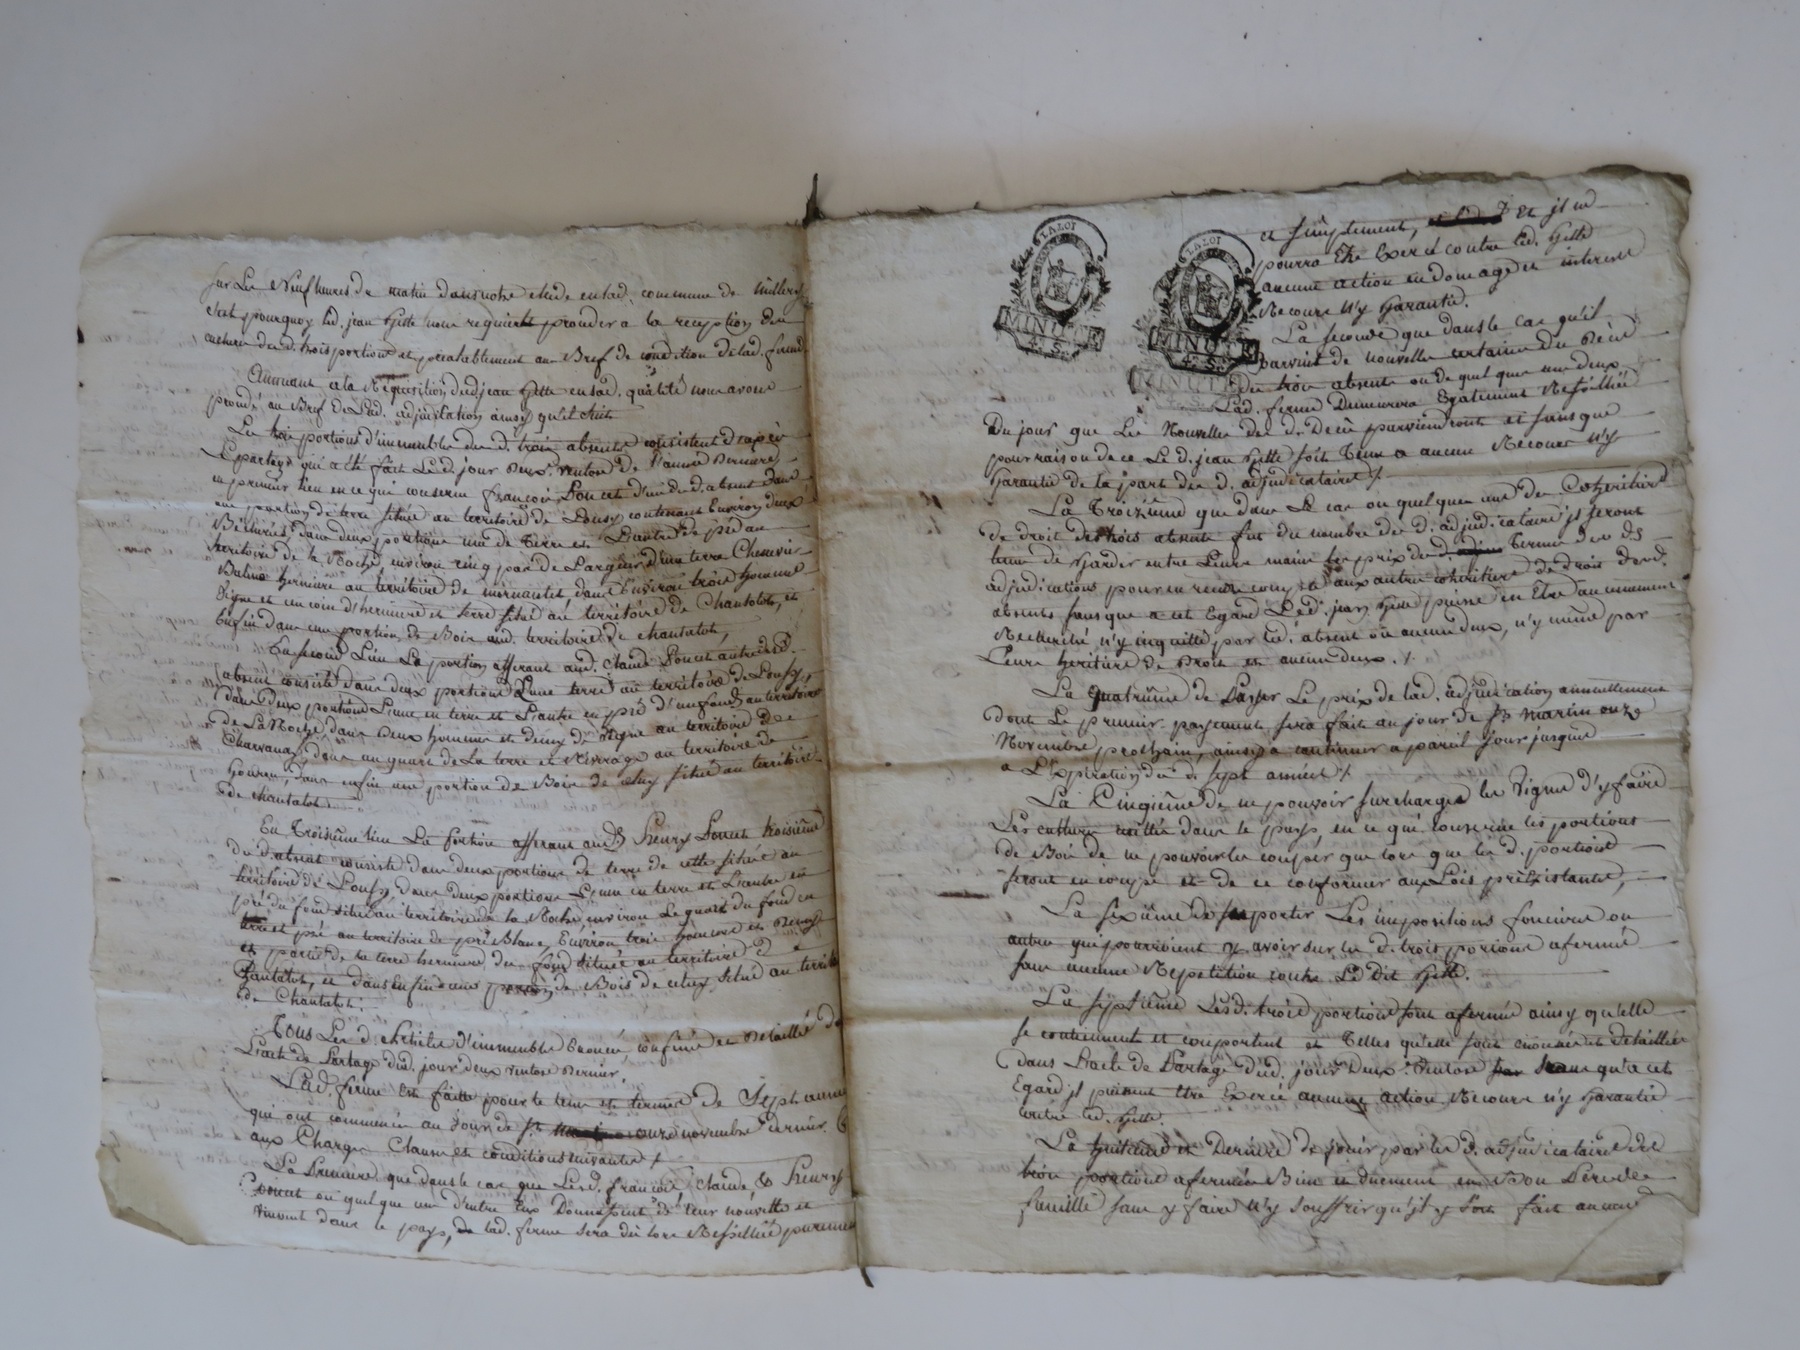 sur Les Neuf heures du matin dans notre etude en lad. commune de millery
C'est pourquoy led. jean Gille nous requiert proceder a la reception des
encheres des d. trois portions et prealablement au Bref de condition de lad. ferme
Amnuant a la Requisition dud jean Gille en lad. qualité nous avons
procedé au Bref de Lad. adjudication ainsy qu'il suit
Les trois portions d'immeuble des d. trois absents consistent d'après
Le partage qui a été fait Led. jour deux ventose de l'année Derniere
en premier lieu en ce qui conserne françois Poncet l'un des d. absent dans
une portion de terre située au territoire de Lousy contenant Environ deux
Bicherées, dans deux portions une de Terre et L'autre de pré au
territoire de la Roche environ cinq pas de Largeur d'une terre Chenevier
hermiere au territoire de mornantet, dans Environ trois hommes
Vigne et un coin d'hermiere et terre situé au territoire de Chantalot, et
Enfin dans une portion de Bois aud. territoire de chantalot,
En second Lieu La portion afferant aud. Claude Poncet autre d.
absent consiste dans deux portions L'une terre au territoire de Lousy,
dans Deux portions L'une en terre et L'autre en pré d'un fonds au territoire
de La Roche, dans Deux hommes et demy de Vigne au territoire de
Charvanay, dans un quart de La terre et au territoire de
dans enfin une portion de Bois de situé au territoire
de chantalot.
En Troisième lieu La portion afferant aud. S. Henry Poncet troisième
du d. absent consiste dans deux portions de terre de cette située au
territoire de Lousy dans Deux portions L'une en terre et L'autre en
pré du fond situé au territoire de la Roche, environ Le quart du fond en
terre et pré au territoire de pré Blanc, Environ trois hommes et Demy
et partie de la terre hermiere du fond située au territoire de
Chantalot, et dans enfin une portion de Bois de celuy situé au territoire
de Chantalot.
Tous Les d. articles d'immeuble Enoncé, confiné et Detaillé de
L'acte de Partage dud. jour deux ventose Dernier,
Lad. ferme est faitte pour le tems et terme de Sept années
qui ont commencé au Jour de St. onze novembre dernier
aux Charges Clauses et conditions suivantes /.
La Premiere que dans le cas que Lesd. françois, Claude, & Henry
Poncet ou quelque un d'entre Eux Donnassent de leur nouvelle et
vinsent dans le pays, lad. ferme sera dès lors Resilliée purement
LA LOI
MINUTE
4. S.
LA LOI
MINUTE
4. S.
MINUTE
et simplement, Et jl ne
pourra Etre Exercé contre led. Gille
aucune action en domages et interest
Recours n'y Garantie.
La seconde que dans le cas qu'il
parvint de nouvelle certaine du Décès
des trois absents ou de quel que un deux
Lad. ferme Demeurera Egalement Resilliée
Du jour que Les Nouvelles des d. Décès parviendront et sans que
pour raison de ce Le d. jean Gille soit Tenu a aucun Recours n'y
Garantie de la part des d. adjudicataires /.
La Troizième que dans Le cas ou quelques uns des Coheritiers
de droit des trois absents fut du nombre des d. adjudicataires jls seront
tenus de Garder entre Leurs mains les prix de ferme des d.
adjudications pour en rendre compte aux autres coheritiers de droit desd.
absents sans que a cet Egard Led. jean Gille puisse en Etre aucunement
Recherché n'y inquietté par led. absent ou aucun deux, n'y même par
Leurs heritiers de Droit et aucun deux. /.
La quatrième de Payer Le prix de lad. adjudication annuellement
dont Le premier payement sera fait au jour de St. martin onze
Novembre prochain, ainsy a continuer a pareil jour jusques
a L'Expiration des d. sept années /.
La Cinqième de ne pouvoir surcharger les Vignes d'y faire
Les cultures usittée dans le pays, en ce qui conserne les portions
de Bois de ne pouvoir les couper que lors que les d. portions
seront en coupe et de ce conformer aux Lois prééxistantes,
La sixième de suporter Les impositions foncieres ou
autres qui pourroient y avoir sur les d. trois porions afermé
sans aucune Repetition contre Le Dit Gille.
La septième Les d. trois portions sont afermé ainsy qu'elle
se contiennent et comportent et Telles qu'elle sont énoncées et detaillées
dans L'acte de Partage dud. jour Deux Ventose sans qu'a cet
Egard jl puissent Etre Exercé aucune action Recours n'y Garantie
contre led. Gille.
La huitieme et Derniere de jouir par les d. adjudicataires des
trois portions afermées Bien et duement en Bon Pere de
famille sans y faire n'y souffrir qu'jl y soit fait aucun